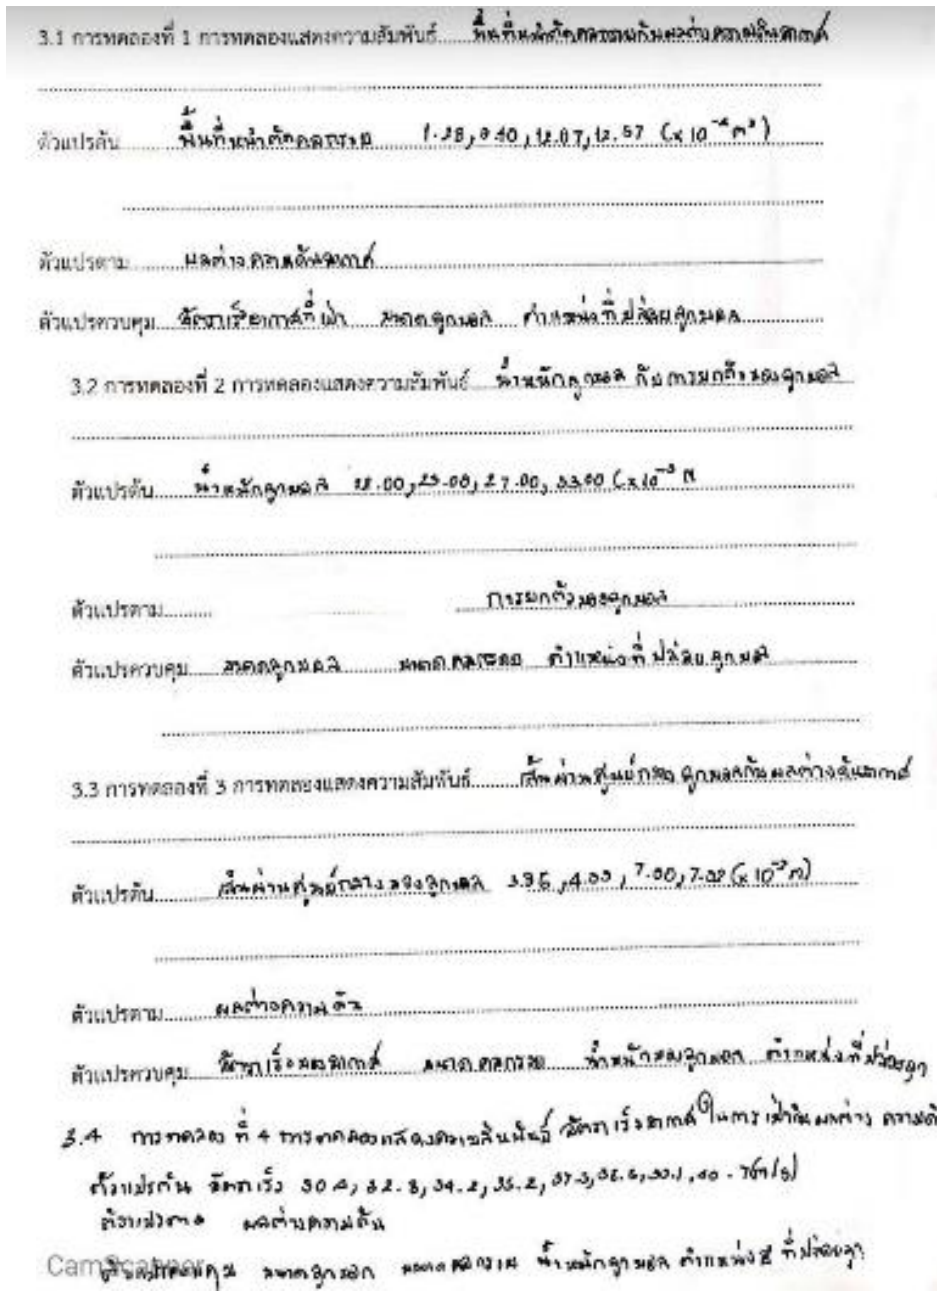 3.1 การทดลองที่ 1 การทดลองแสดงความสัมพันธ์ พื้นที่หน้าตัดคอกรวยกับผลต่างความดันอากาศ
ตัวแปรต้น พื้นที่หน้าตัดคอกรวย 12.07, 12.57 (x 10⁻⁴ m²)
ตัวแปรตาม ผลต่างความดันอากาศ
ตัวแปรควบคุม อัตราเร็วอากาศที่เป่า ขนาดลูกบอล ตำแหน่งที่ปล่อยลูกบอล
3.2 การทดลองที่ 2 การทดลองแสดงความสัมพันธ์ น้ำหนักลูกบอล กับการยกตัวของลูกบอล
ตัวแปรต้น น้ำหนักลูกบอล 25.00, 27.00, 33.00 (x 10⁻³ N
ตัวแปรตาม การยกตัวของลูกบอล
ตัวแปรควบคุม ขนาดลูกบอล ขนาดคอกรวย ตำแหน่งที่ปล่อยลูกบอล
3.3 การทดลองที่ 3 การทดลองแสดงความสัมพันธ์ เส้นผ่านศูนย์กลาง ลูกบอลกับผลต่างดันอากาศ
ตัวแปรต้น เส้นผ่านศูนย์กลางของลูกบอล 7.00
ตัวแปรตาม ผลต่างความดัน
ตัวแปรควบคุม อัตราเร็วของอากาศ ขนาดคอกรวย น้ำหนักของลูกบอล ตำแหน่งที่ปล่อยลูก
3.4 การทดลอง ที่ 4 การทดลองแสดงความสัมพันธ์ อัตราเร็วอากาศในการเป่ากับผลต่าง ความดั
ตัวแปรต้น อัตราเร็ว 30.4, 32.8, 34.2, 35.2
ตัวแปรตาม ผลต่างความดัน
CamScanner ตัวแปรควบคุม ขนาดลูกบอล ขนาดคอกรวย น้ำหนักลูกบอล ที่ปล่อยลูก